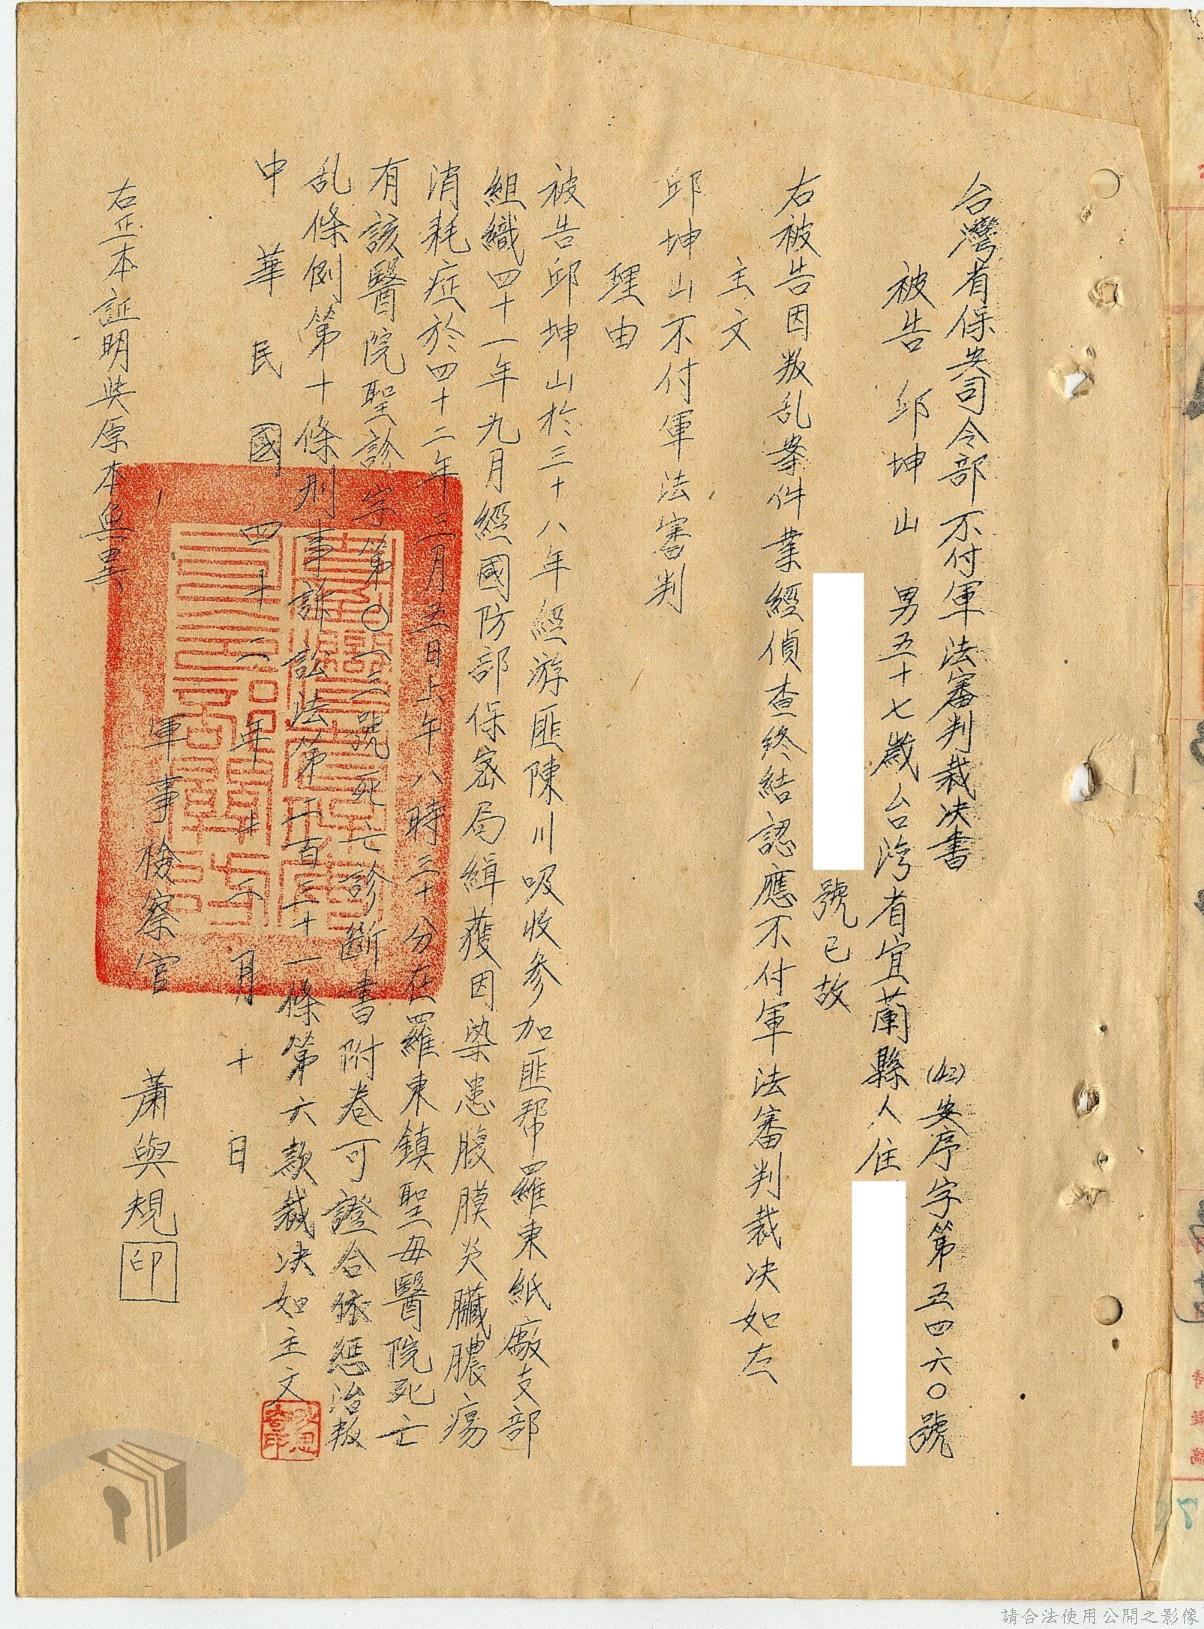 台灣省保安司令部不付軍法審判裁决書
(42)安序字第五四六〇號
被告 邱坤山 男五十七歲台湾省宜蘭縣人住
號已故
右被告因叛乱案件業經偵查終結認應不付軍法審判裁决如左
主文
邱坤山不付軍法審判
理由
被告邱坤山於三十八年經游匪陳川吸收参加匪帮羅東紙廠支部
組織四十一年九月經國防部保密局緝獲因染患腹膜炎臟膿瘍
消耗症於四十二年三月五日上午八時三十分在羅東鎮聖母醫院死亡
有該醫院聖診字第〇一三號死亡診斷書附卷可證合依惩治叛
乱條例第十條刑事訴訟法第二百三十一條第六款裁决如主文
中華民國四十二年十二月十日
軍事檢察官 蕭與規 印
右正本証明與原本無異
請合法使用公開之影像